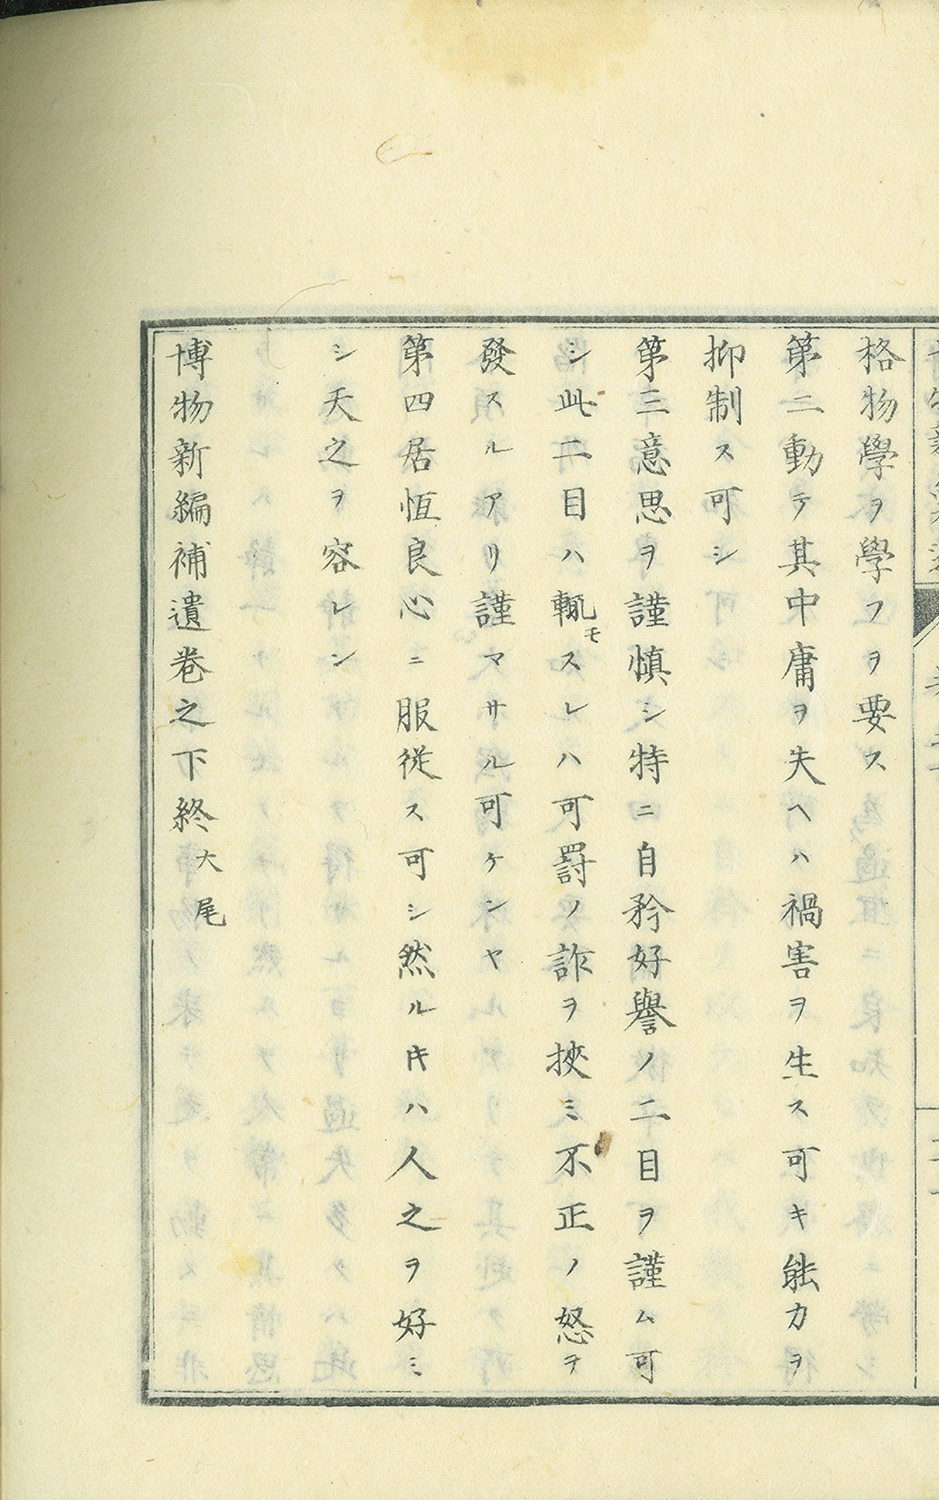 格物學ヲ學フヲ要ス
第二動テ其中庸ヲ失ヘハ禍害ヲ生ス可キ能力ヲ
抑制ス可シ
第三意思ヲ謹慎シ特ニ自矜好譽ノ二目ヲ謹ム可
シ此二目ハ輒モスレハ可罰ノ詐ヲ挾ミ不正ノ怒ヲ
發スルアリ謹マサル可ケンヤ
第四居恆良心ニ服從ス可シ然ルキハ人之ヲ好ミ
シ天之ヲ容レン
博物新編補遺卷之下終大尾